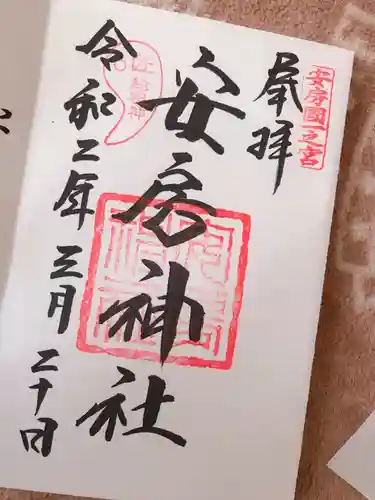 安房國一之宮
奉拝
安房神社
令和二年三月二十日